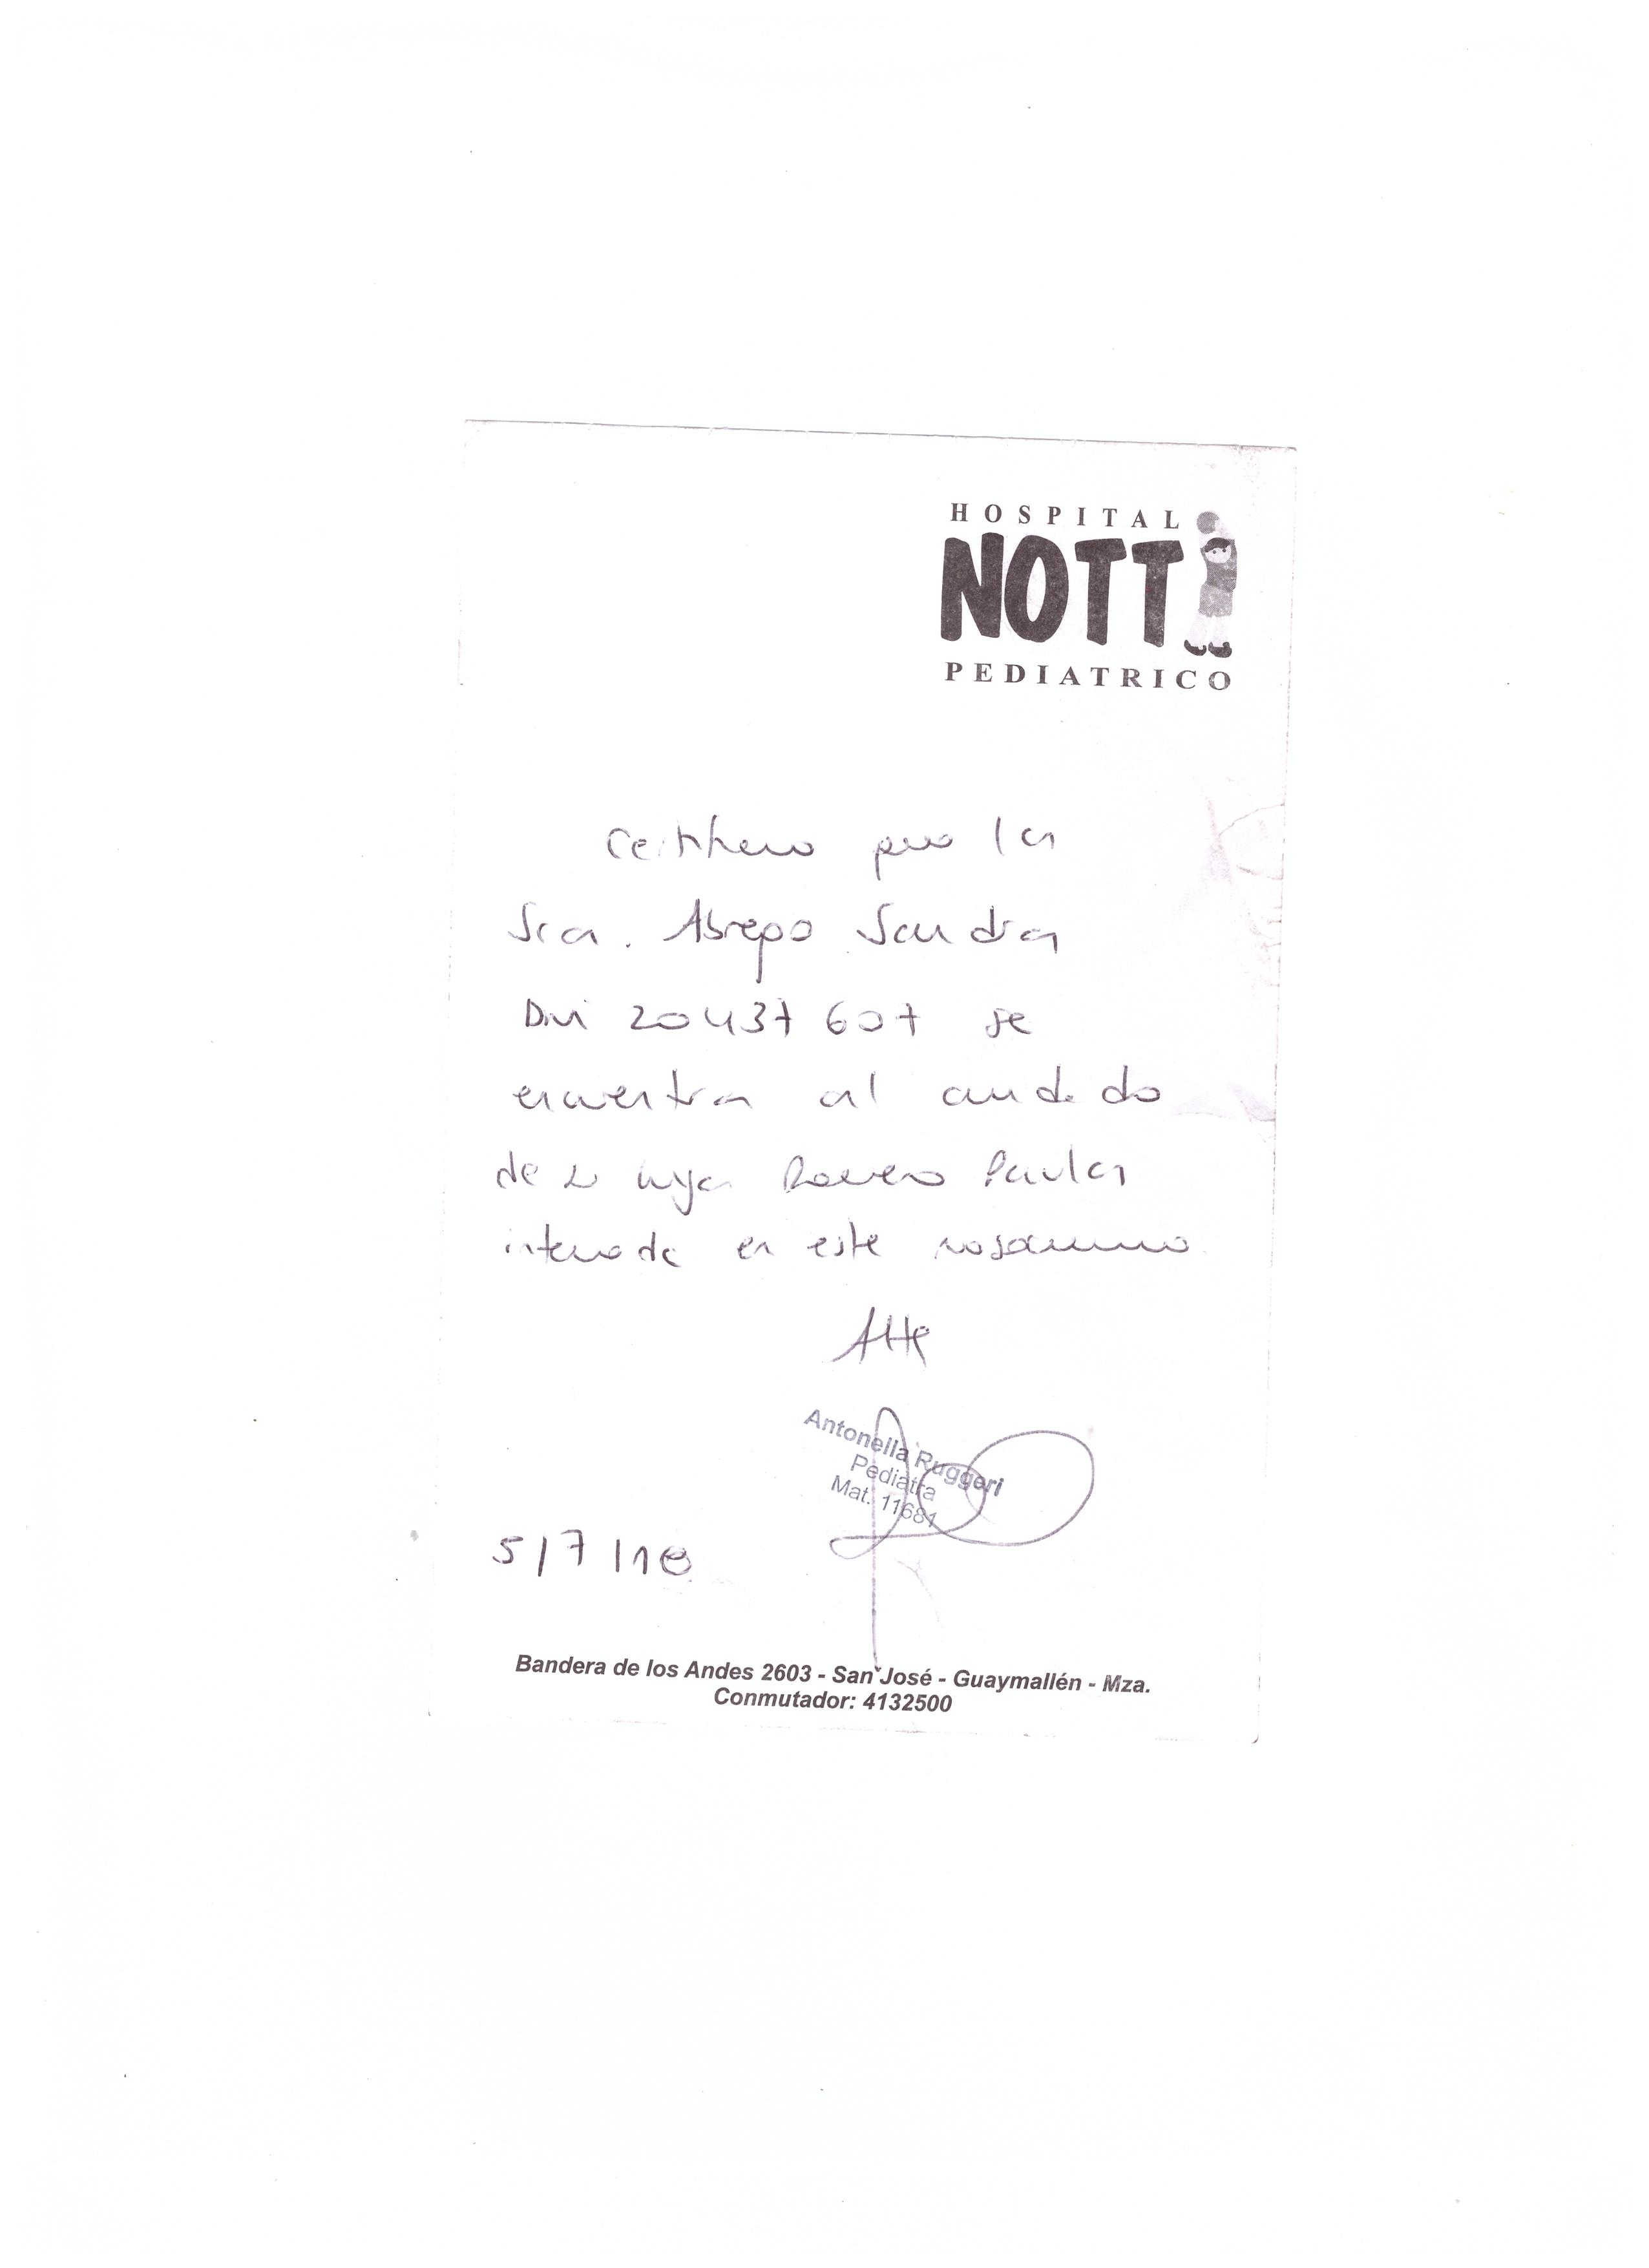 HOSPITAL
NOTTI
PEDIATRICO
Certifico que la
Sra. Abrego Sandra
DNI 20437607 se
encuentra al cuidado
de su hija Romero Paula
internada en este nosocomio.
Atte
Antonella Ruggeri
Pediatra
Mat. 11681
5/7/18
Bandera de los Andes 2603 - San José - Guaymallén - Mza.
Conmutador: 4132500